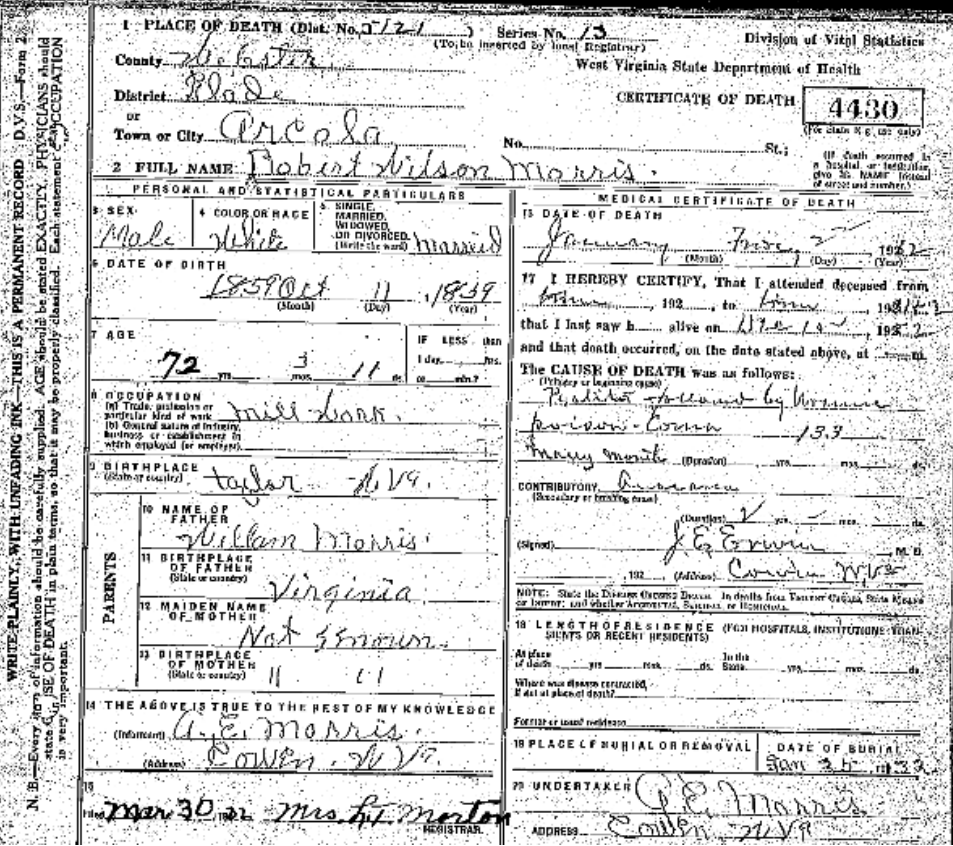 1 PLACE OF DEATH (Dist. No. 5121) Series No. 13
(To be inserted by local Registrar)
Division of Vital Statistics
County Webster
West Virginia State Department of Health
District Glade
CERTIFICATE OF DEATH 4430
or
Town or City Arcola
(For State Reg. use only)
No. St.;
(If death occurred in a hospital or institution give its NAME instead of street and number.)
2 FULL NAME Robert Wilson Morris.
PERSONAL AND STATISTICAL PARTICULARS
3 SEX Male
4 COLOR OR RACE White
5 SINGLE, MARRIED, WIDOWED, OR DIVORCED. (Write the word) Married
6 DATE OF BIRTH
1859 Oct 11, 1839
(Month) (Day) (Year)
7 AGE
72 yrs. 3 mos. 11 ds.
IF LESS than
1 day, hrs.
or min.?
8 OCCUPATION
(a) Trade, profession or particular kind of work
(b) General nature of industry, business or establishment in which employed (or employer)
Mill Work.
9 BIRTHPLACE
(State or country) taylor W.Va.
PARENTS
10 NAME OF FATHER
William Morris.
11 BIRTHPLACE OF FATHER
(State or country) Virginia
12 MAIDEN NAME OF MOTHER
Not Known.
13 BIRTHPLACE OF MOTHER
(State or country) 11 11
14 THE ABOVE IS TRUE TO THE BEST OF MY KNOWLEDGE
(Informant) A. E. Morris.
(Address) Cowen. W Va.
15
Filed Mar. 30, 1932 Mrs. L.T. Morton
REGISTRAR.
MEDICAL CERTIFICATE OF DEATH
DATE OF DEATH
January
(Month) (Day) (Year)
17 I HEREBY CERTIFY, That I attended deceased from
, 192 , to
that I last saw h alive on
and that death occurred, on the date stated above, at m.
The CAUSE OF DEATH was as follows:
(Primary or beginning cause)
by
poison - Coma 133
many months (Duration) yrs. mos. ds.
CONTRIBUTORY
(Secondary or breaking cause)
(Duration) 2 yrs. mos. ds.
(Signed) J E Erwin M. D.
, 192 (Address) Cowen W.Va
NOTE: State the Disease Causing Death. In deaths from Violent Causes, State Means of Injury; and whether Accidental, Suicidal or Homicidal.
18 LENGTH OF RESIDENCE (FOR HOSPITALS, INSTITUTIONS, TRANSIENTS OR RECENT RESIDENTS)
At place of death yrs. mos. ds. In the State yrs. mos. ds.
Where was disease contracted,
if not at place of death?
Former or usual residence
19 PLACE OF BURIAL OR REMOVAL
DATE OF BURIAL
Jan 25, 1932
20 UNDERTAKER A. E. Morris
ADDRESS Cowen W.Va
WRITE PLAINLY, WITH UNFADING INK—THIS IS A PERMANENT RECORD D.V.S.—Form 2
N. B.—Every item of information should be carefully supplied. AGE should be stated EXACTLY. PHYSICIANS should
state CAUSE OF DEATH in plain terms, so that it may be properly classified. Each statement of OCCUPATION
is very important.